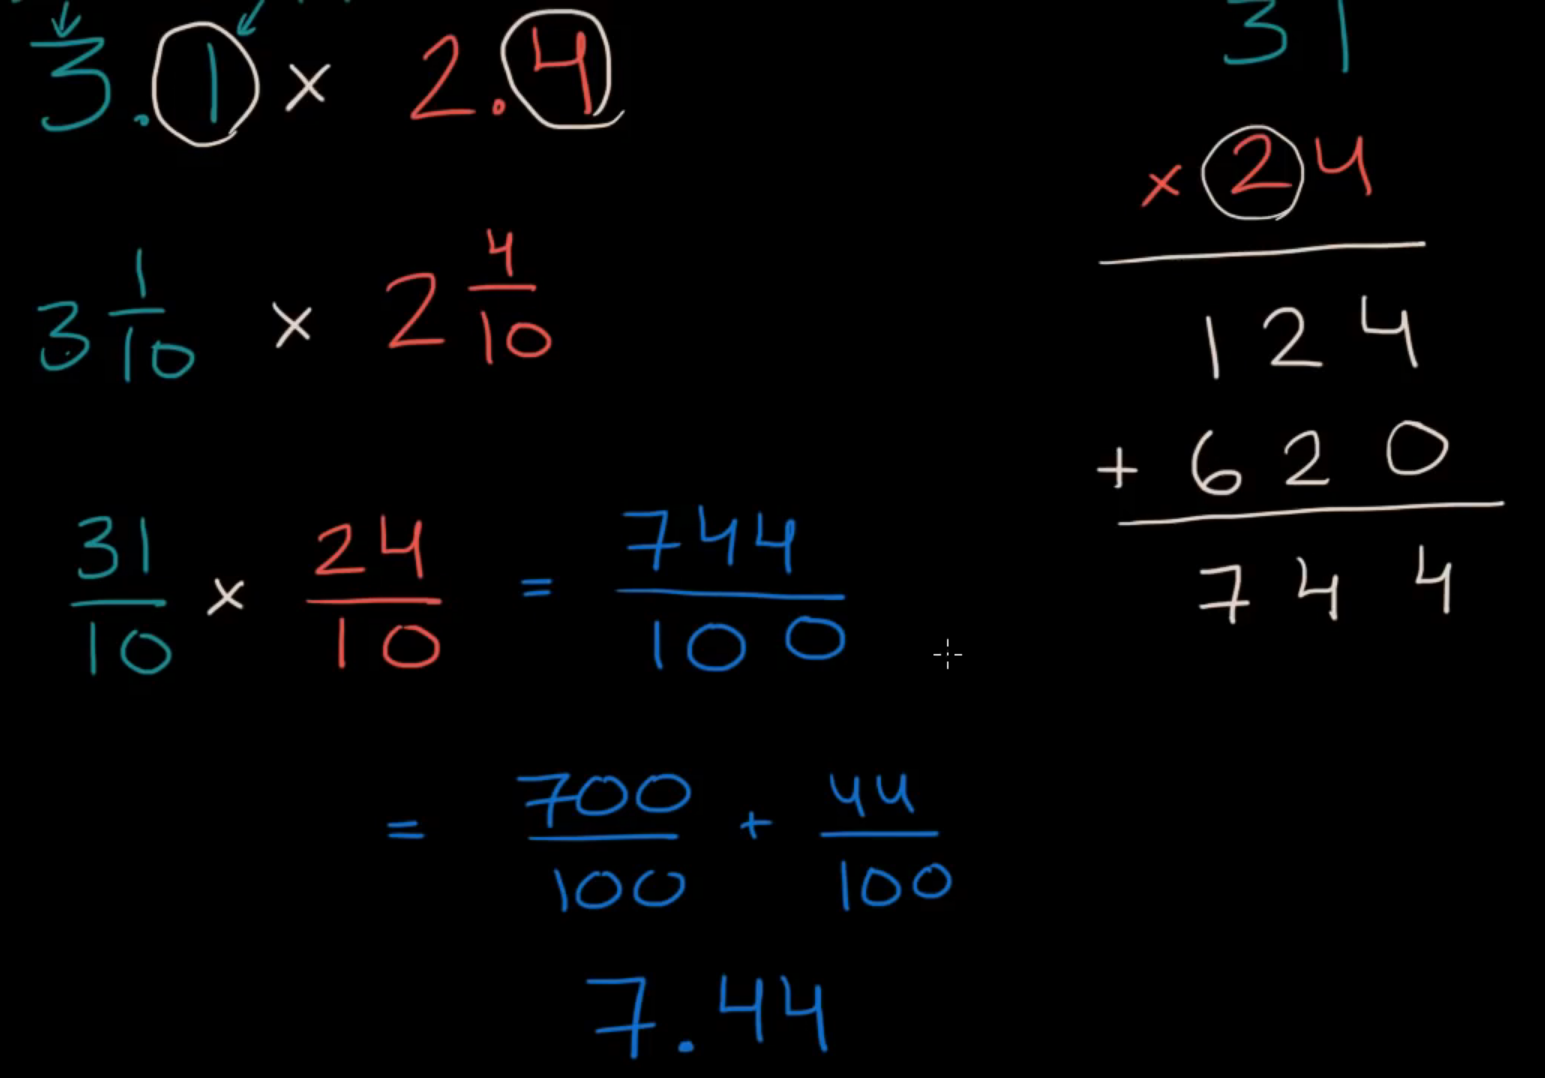 3.1 × 2.4
3 1/10 × 2 4/10
31/10 × 24/10 = 744/100
= 700/100 + 44/100
7.44
31
× 24
124
+ 620
744